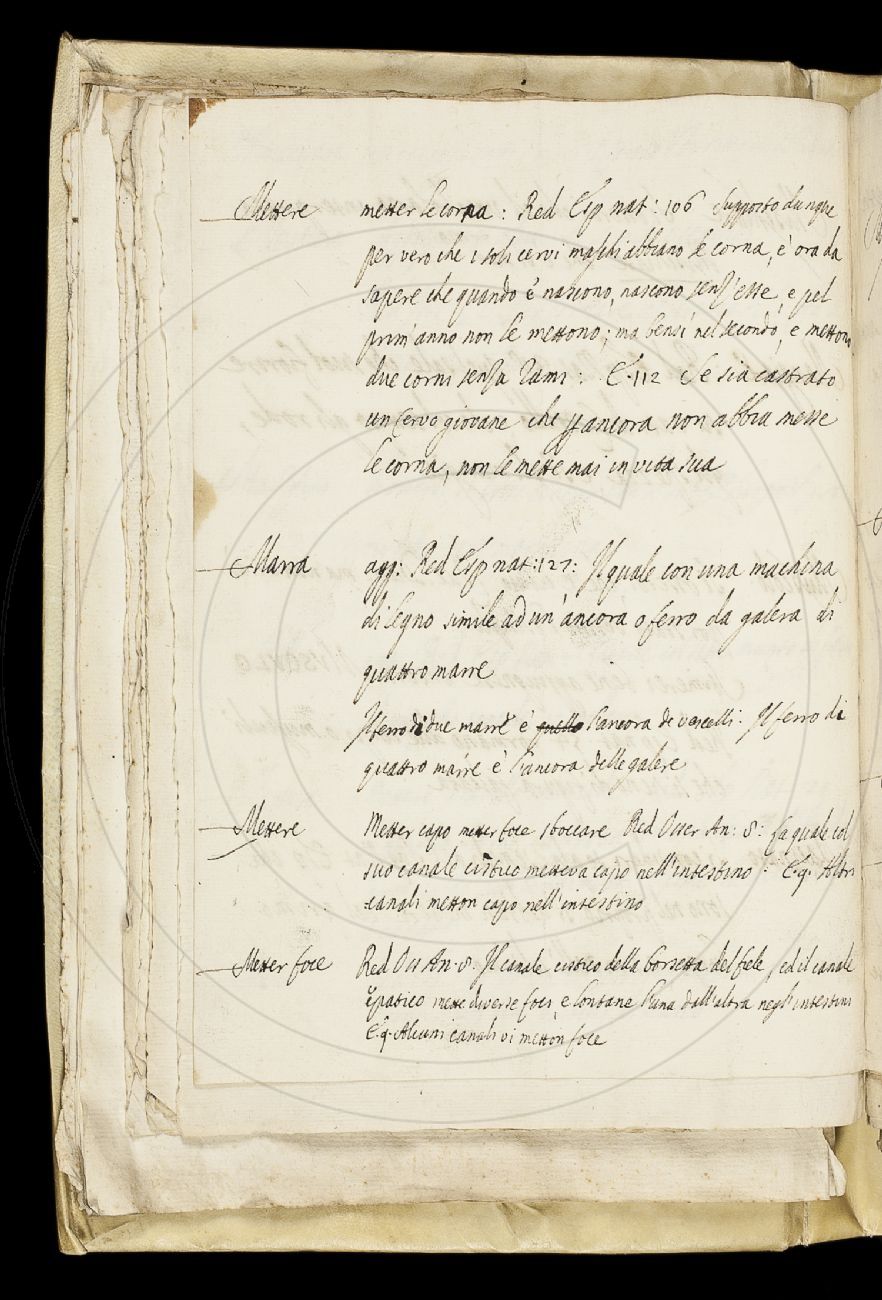 Mettere metter le corna : Red Esp nat : 106 Supposto dunque
per vero che i soli cervi maschi abbiano le corna, è ora da
sapere che quando e' nascono, nascono senz'esse, e pel
prim'anno non le mettono; ma bensì nel secondo, e mettono
due corni senza rami : E. 112 Se sia castrato
un Cervo giovane che per ancora non abbia messe
le corna, non le mette mai in vita sua
Marra agg: Red Esp nat: 127: Il quale con una machina
di legno simile ad un'ancora o ferro da galera di
quattro marre
Il ferro di due marre è quello l'ancora de vascelli: Il ferro di
quattro marre è l'ancora delle galere
Mettere Metter capo metter foce sboccare Red Osser An: 8: La quale col
suo canale cistico metteva capo nell'intestino : E. 9. Altri
canali metton capo nell'intestino
Metter foce Red Oss An. 8. Il canale cistico della borsetta del fele, ed il canale
epatico mette diverse foci, e lontane l'una dall'altra negl'intestini
E. 9. Alcuni canali vi metton foce